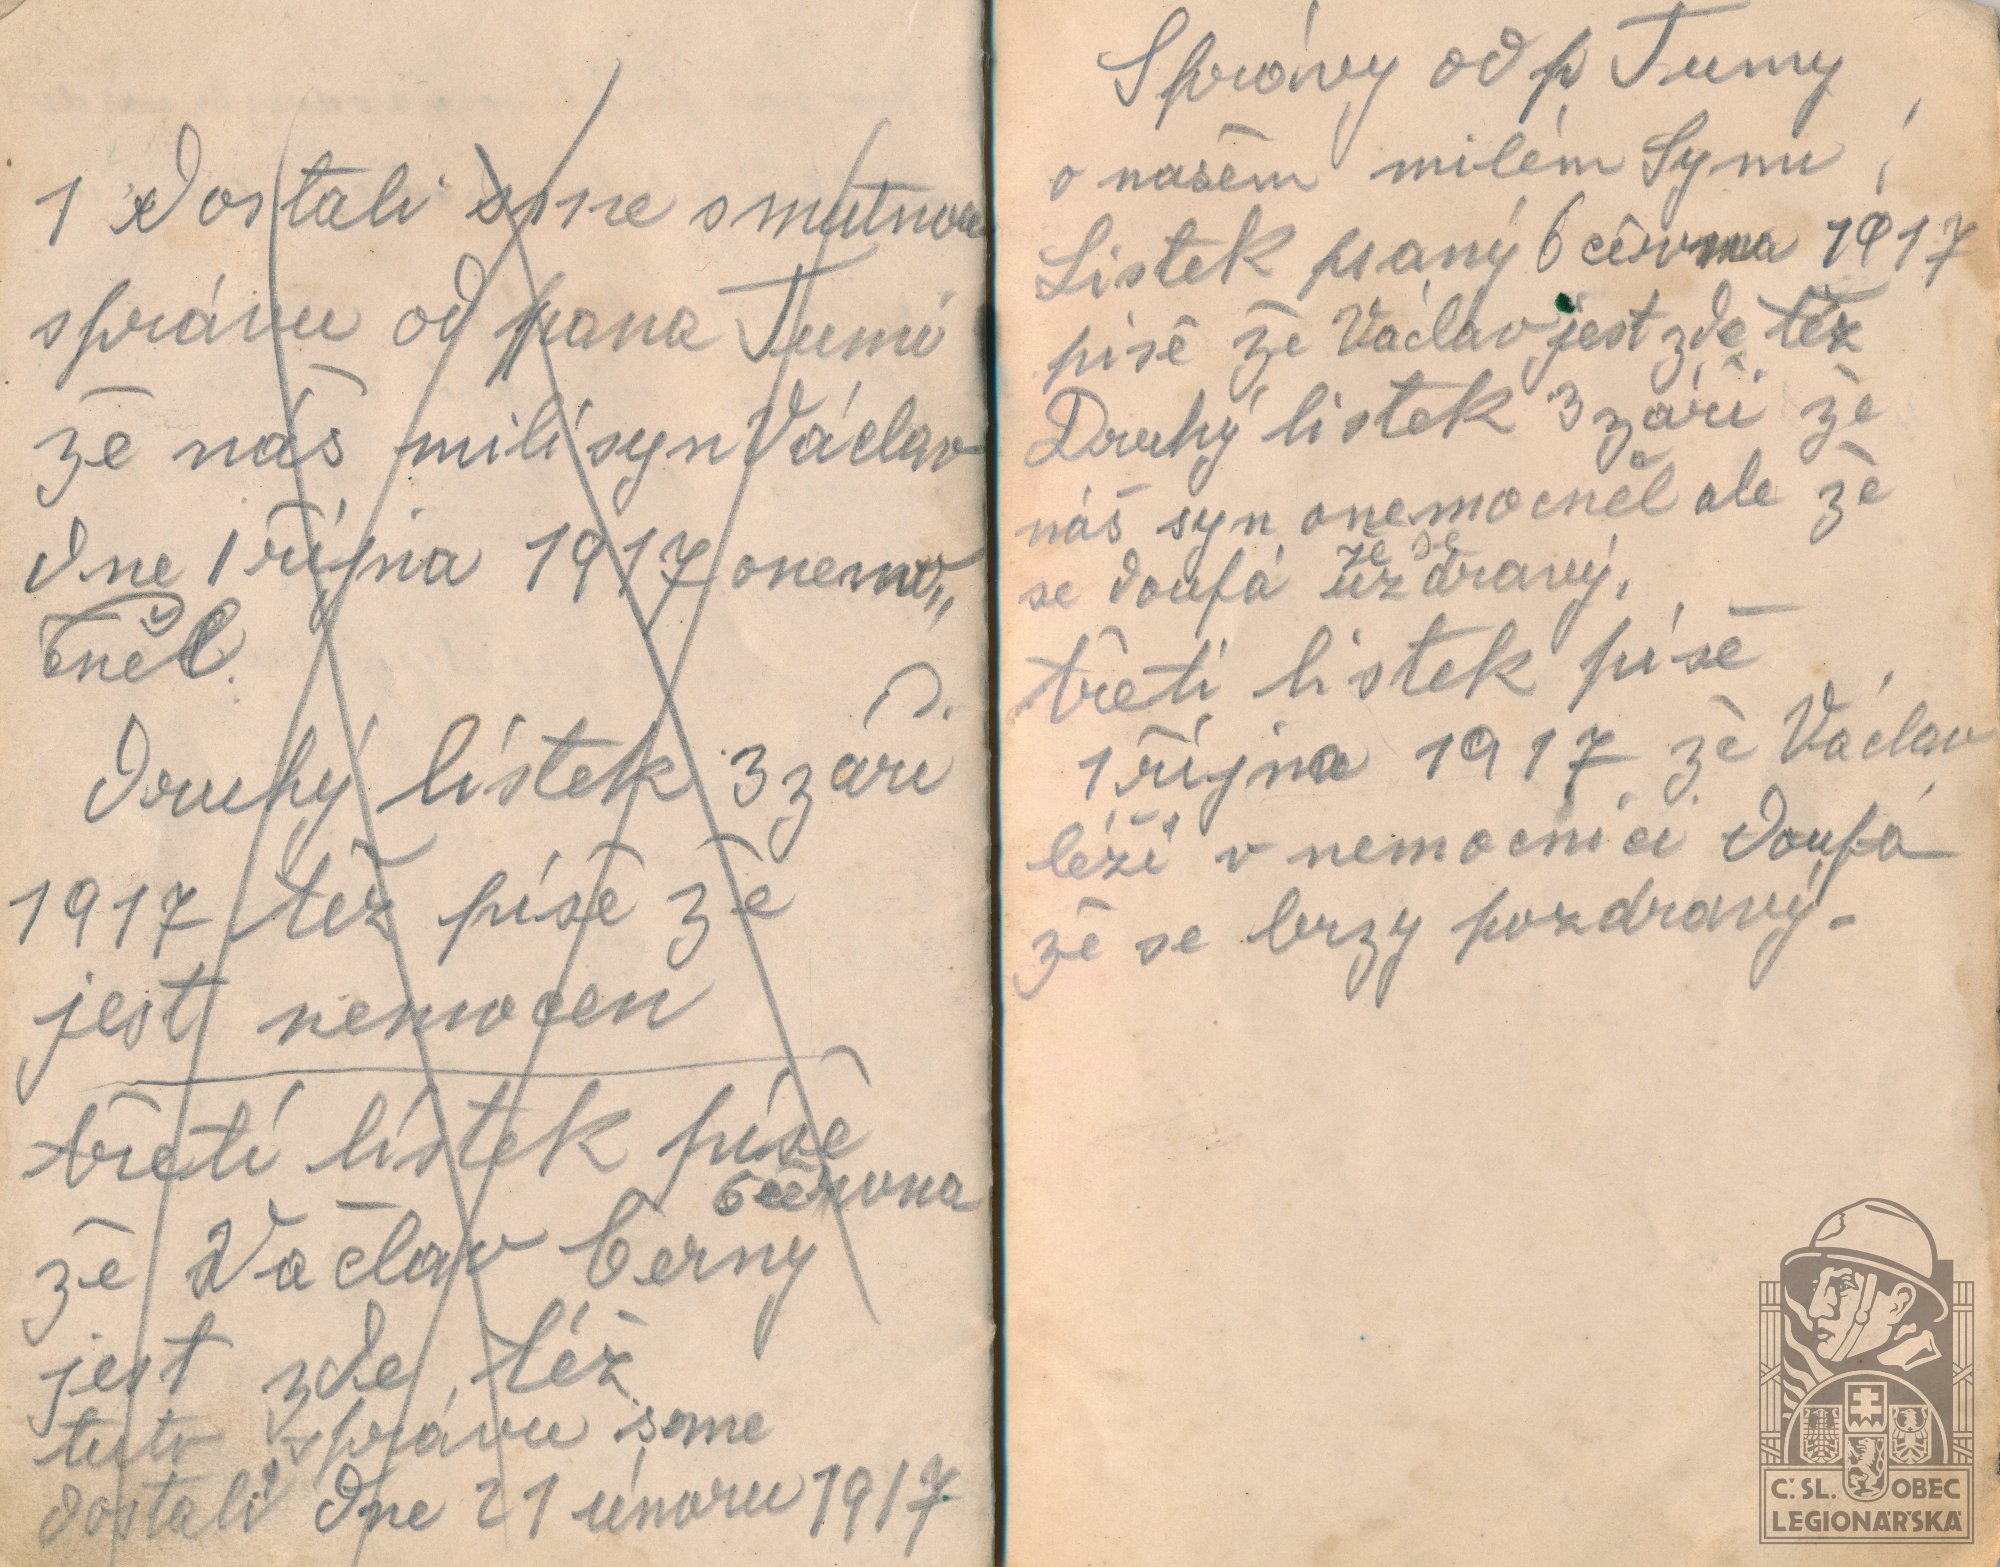 1 Dostali sme smutnou
správu od pana Tumi
že náš milí syn Václav
dne 1 října 1917 onemo„
cněl.
Druhý lístek 3 září
1917 též píše že
jest nemocen
třetí lístek píše
6 června
že Václav Černy
jest zde též
tuto správu sme
dostali dne 21 únoru 1917
Správy od p Tumy
o našem milém Synu
Listek psaný 6 června 1917
píše že Václav jest zde též
Druhý listek 3 září že
náš syn onemocněl ale že
se doufá že se
uzdravý,
třeti listek píše
1 října 1917 že Václav
léží v nemocnici doufá
že se brzy pozdravý-
Č. SL. OBEC
LEGIONÁŘSKÁ